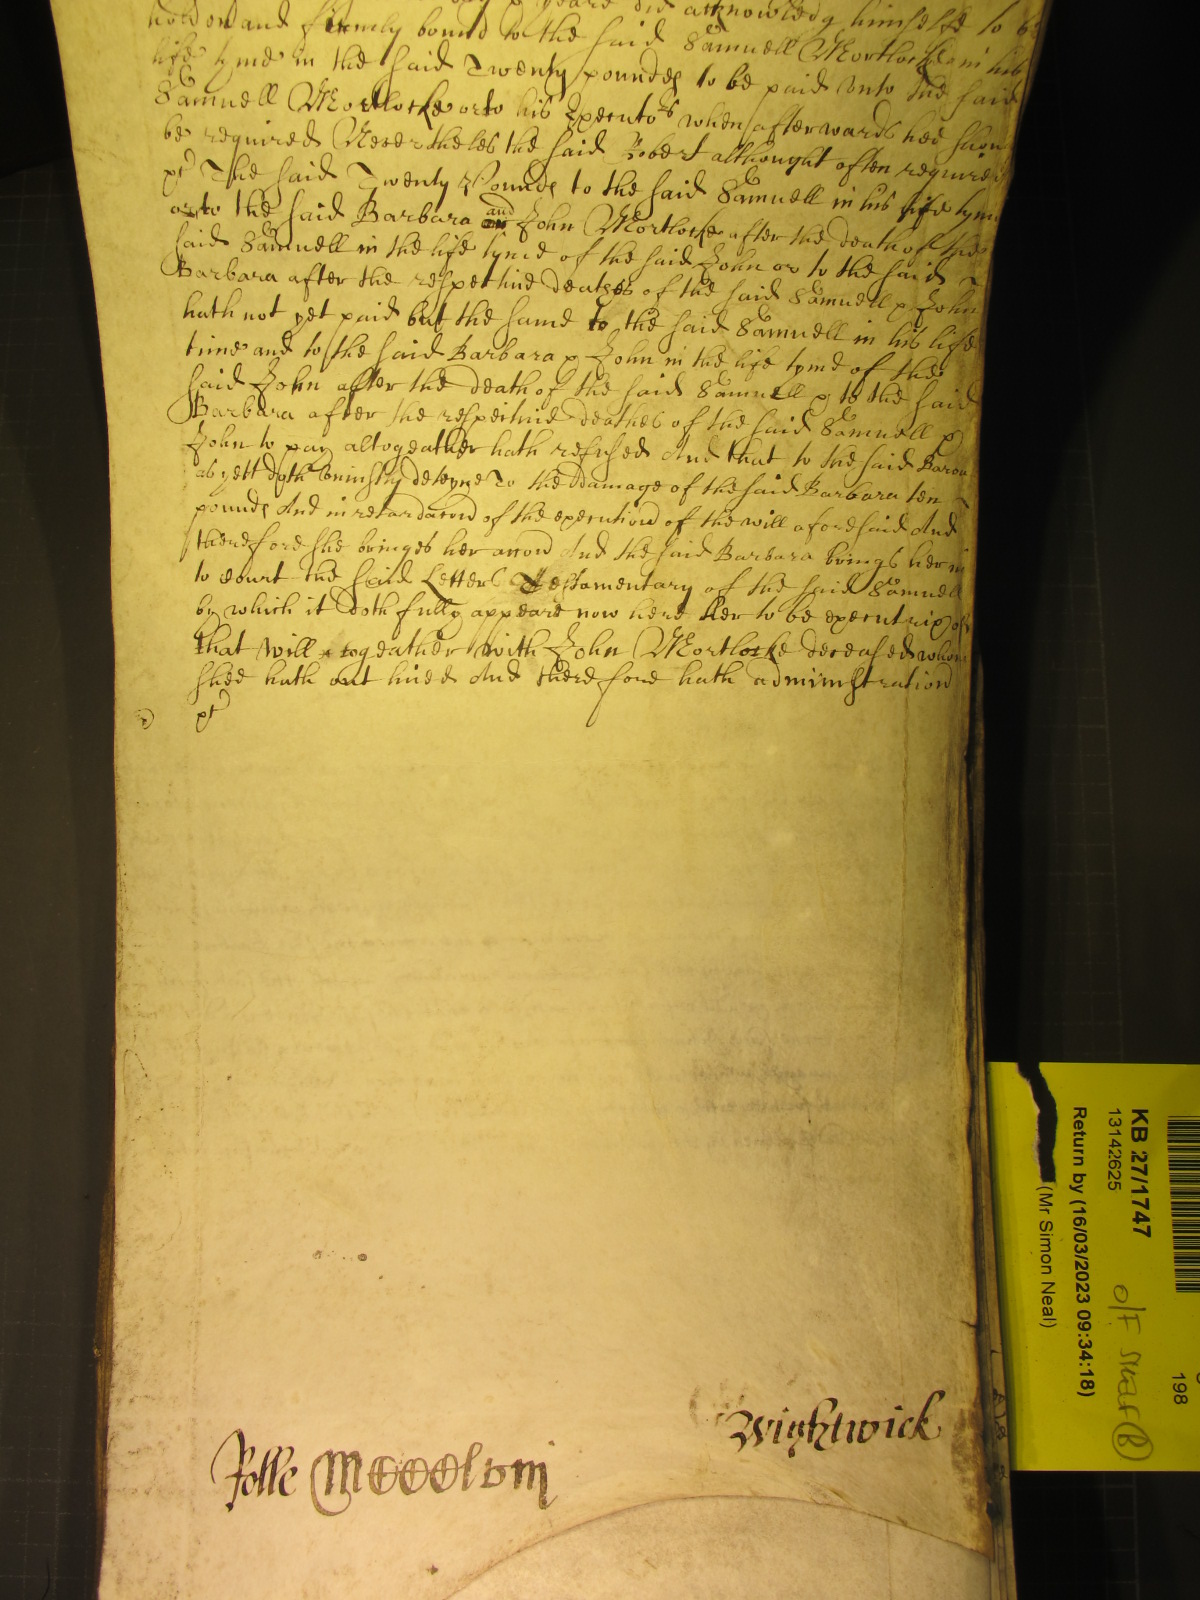 yeare did acknowledg himselfe to be
holden and firmely bound to the said Samuell Mortlocke in his
life tyme in the said Twenty poundes to be paid vnto the said
Samuell Mortlocke or to his Executors when afterwards hee should
be required Neverthelес the said Robert althought often required
The said Twenty Pounds to the said Samuell in his life tyme
or to the said Barbara and John Mortlocke after the death of the
said Samuell in the life tyme of the said John or to the said
Barbara after the respective deathes of the said Samuell & John
hath not yet paid but the same to the said Samuell in his life
time and to the said Barbara & John in the life tyme of the
said John after the death of the said Samuell & to the said
Barbara after the respective deathes of the said Samuell &
John to pay altogeather hath refused And that to the said Barba
as yett doth uniustly deteyne To the damage of the said Barbara ten
pounds And in retardacon of the execution of the will aforesaid And
therefore she bringes her accon And the said Barbara brings here in
to Court the said Letters Testamentary of the said Samuell
by which it doth fully appeare now here Her to be executrix of
that will togeather with John Mortlocke deceased whom
shee hath out lived And therefore hath administration
Wightwick
Rolle MCCClviij
KB 27/1747
13142625
Return by (16/03/2023 09:34:18)
(Mr Simon Neal)
O/F
198